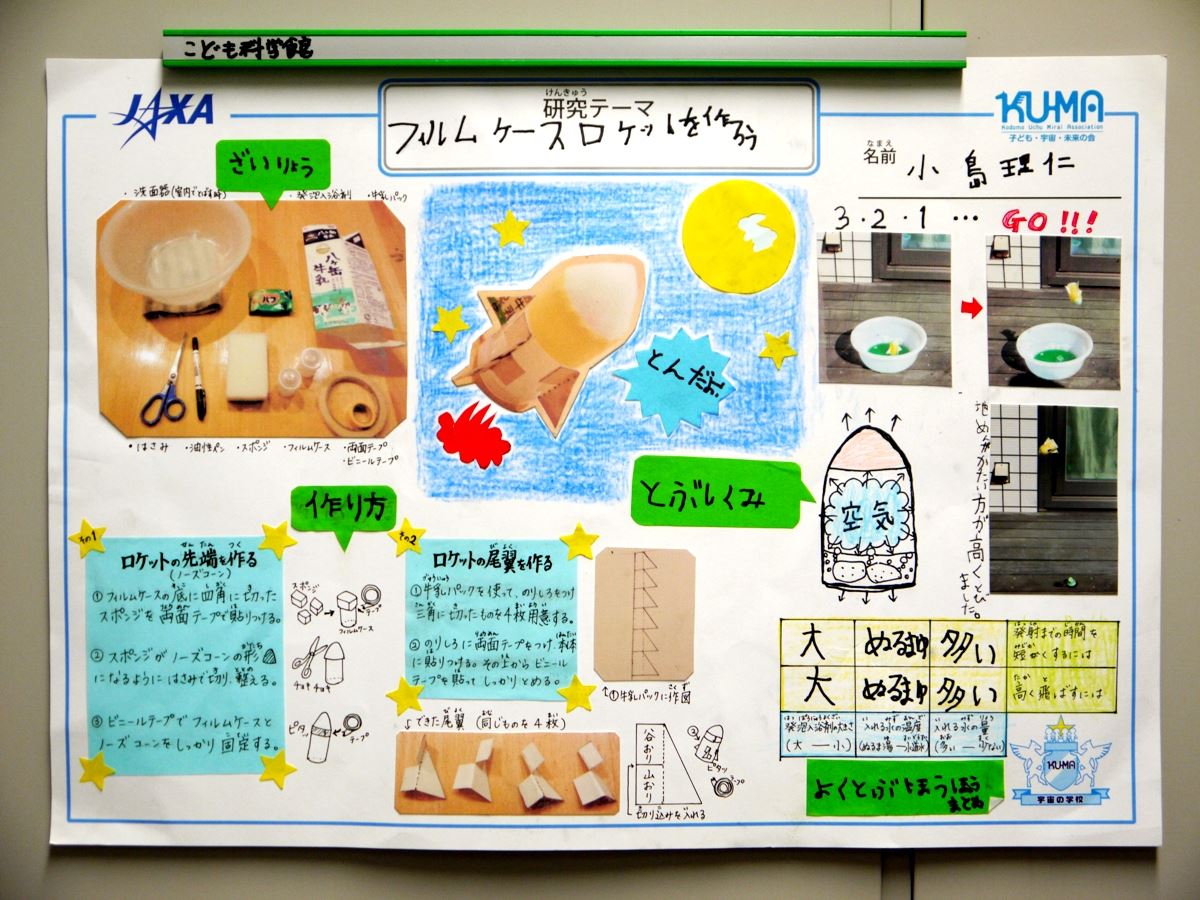 こども科学館
JAXA
けんきゅう
研究テーマ
フィルムケースロケットを作ろう
KU-MA
Kodomo Uchu Mirai Association
子ども・宇宙・未来の会
なまえ
名前 小島理仁
ざいりょう
・洗面器(室内でとばす時) ・発泡入浴剤 ・牛乳パック
八ヶ岳
牛乳
バブ
・はさみ ・油性ペン ・スポンジ ・フィルムケース ・両面テープ
・ビニールテープ
とんだよ!
3・2・1・・・ GO!!!
地めんがかたい方が高くとびました。
とぶしくみ
空気
作り方
その1
せんたん つく
ロケットの先端を作る
(ノーズコーン)
①フィルムケースの底に四角に切った
スポンジを両面テープで貼りつける。
②スポンジがノーズコーンの形
になるようにはさみで切り、整える。
③ビニールテープでフィルムケースと
ノーズコーンをしっかり固定する。
スポンジ
フィルムケース
チョキ チョキ
ピタッ
テープ
その2
びよく
ロケットの尾翼を作る
①牛乳パックを使って、のりしろをつけ
三角に切ったものを4枚用意する。
②のりしろに両面テープをつけ、本体
に貼りつける。その上からビニール
テープを貼ってしっかりとめる。
↑①牛乳パックに作図
できた尾翼(同じものを4枚)
谷おり
山おり
切り込みを入れる
②
ピタッ
テープ
大 ぬるまゆ 多い 発射までの時間を
短かくするには
大 ぬるまゆ 多い 高く飛ばすには
発泡入浴剤の大きさ 入れる水の温度 入れる水の量
(大―小) (ぬるま湯―水道水) (多い―少ない)
よくとぶほうほう
まとめ
KU-MA
宇宙の学校